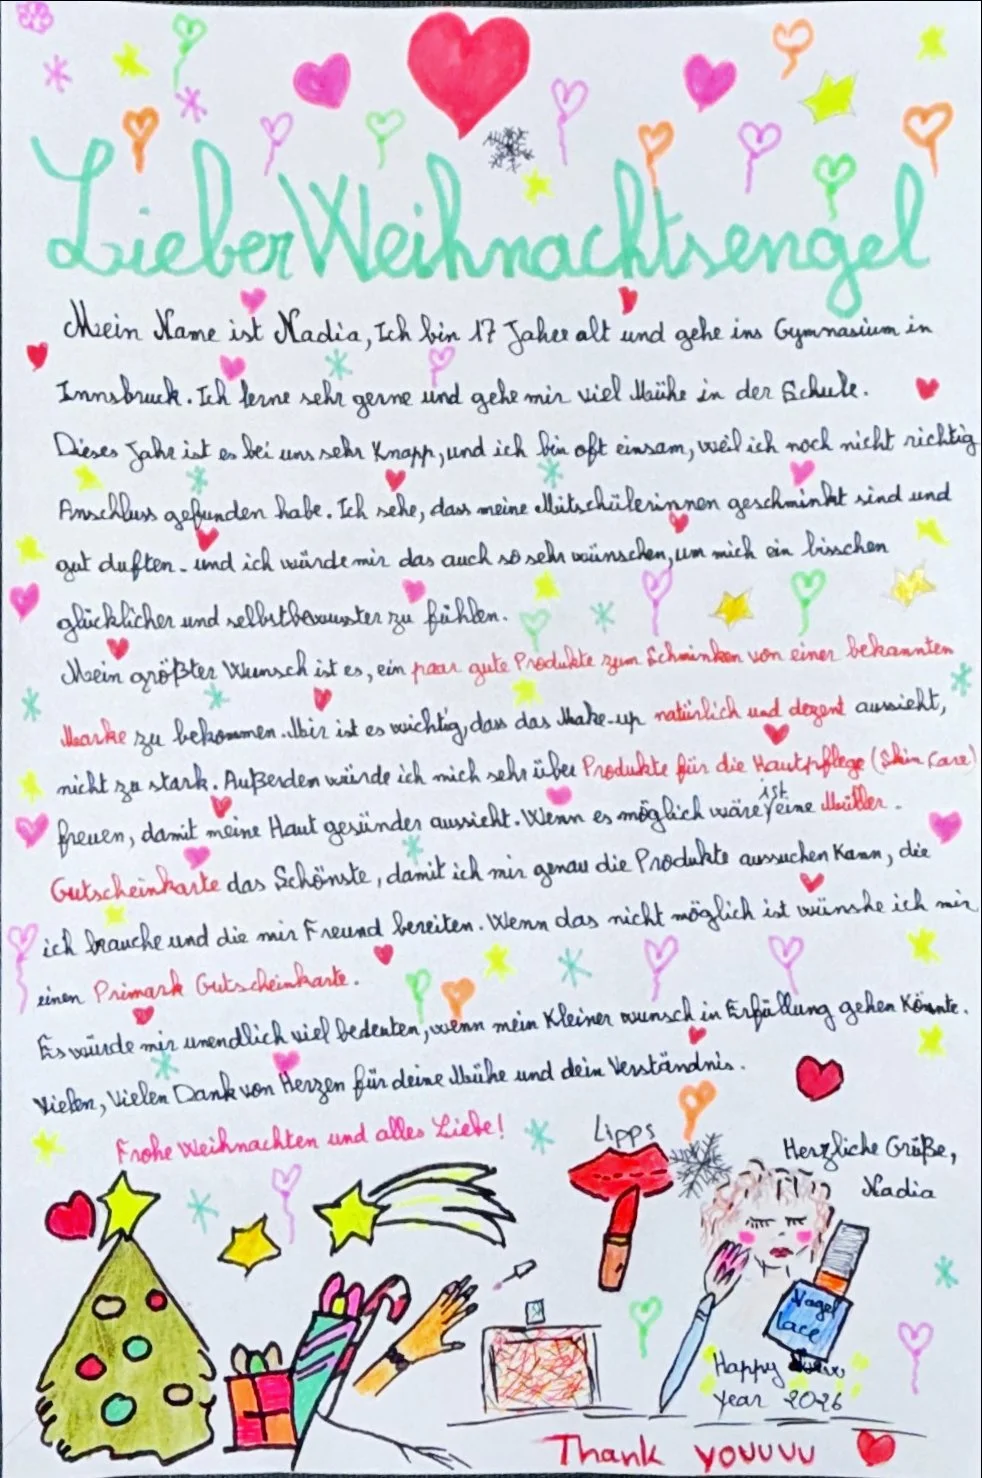 Lieber Weihnachtsengel
Mein Name ist Nadia, Ich bin 17 Jahre alt und gehe ins Gymnasium in
Innsbruck. Ich lerne sehr gerne und gehe mir viel Mühe in der Schule.
Dieses Jahr ist es bei uns sehr Knapp, und ich bin oft einsam, weil ich noch nicht richtig
Anschluss gefunden habe. Ich sehe, dass meine Mitschülerinnen geschminkt sind und
gut duften - und ich würde mir das auch so sehr wünschen, um mich ein bisschen
glücklicher und selbstbewusster zu fühlen.
Mein größter Wunsch ist es, ein paar gute Produkte zum Schminken von einer bekannten
Marke zu bekommen. Mir ist es wichtig, dass das Make-up natürlich und dezent aussieht,
nicht zu stark. Außerden würde ich mich sehr über Produkte für die Hautpflege (Skin Care)
freuen, damit meine Haut gesünder aussieht. Wenn es möglich wäre ist eine Müller
Gutscheinkarte das Schönste, damit ich mir genau die Produkte aussuchen Kann, die
ich brauche und die mir Freund bereiten. Wenn das nicht möglich ist wünshe ich mir
einen Primark Gutscheinkarte.
Es würde mir unendlich viel bedeuten, wenn mein Kleiner wunsch in Erfüllung gehen Könnte.
Vielen, Vielen Dank von Herzen für deine Mühe und dein Verständnis.
Frohe Weihnachten und alles Liebe!
Lipps
Herzliche Grüße,
Nadia
Nagel
lace
Happy
year 2026
Thank youuuu